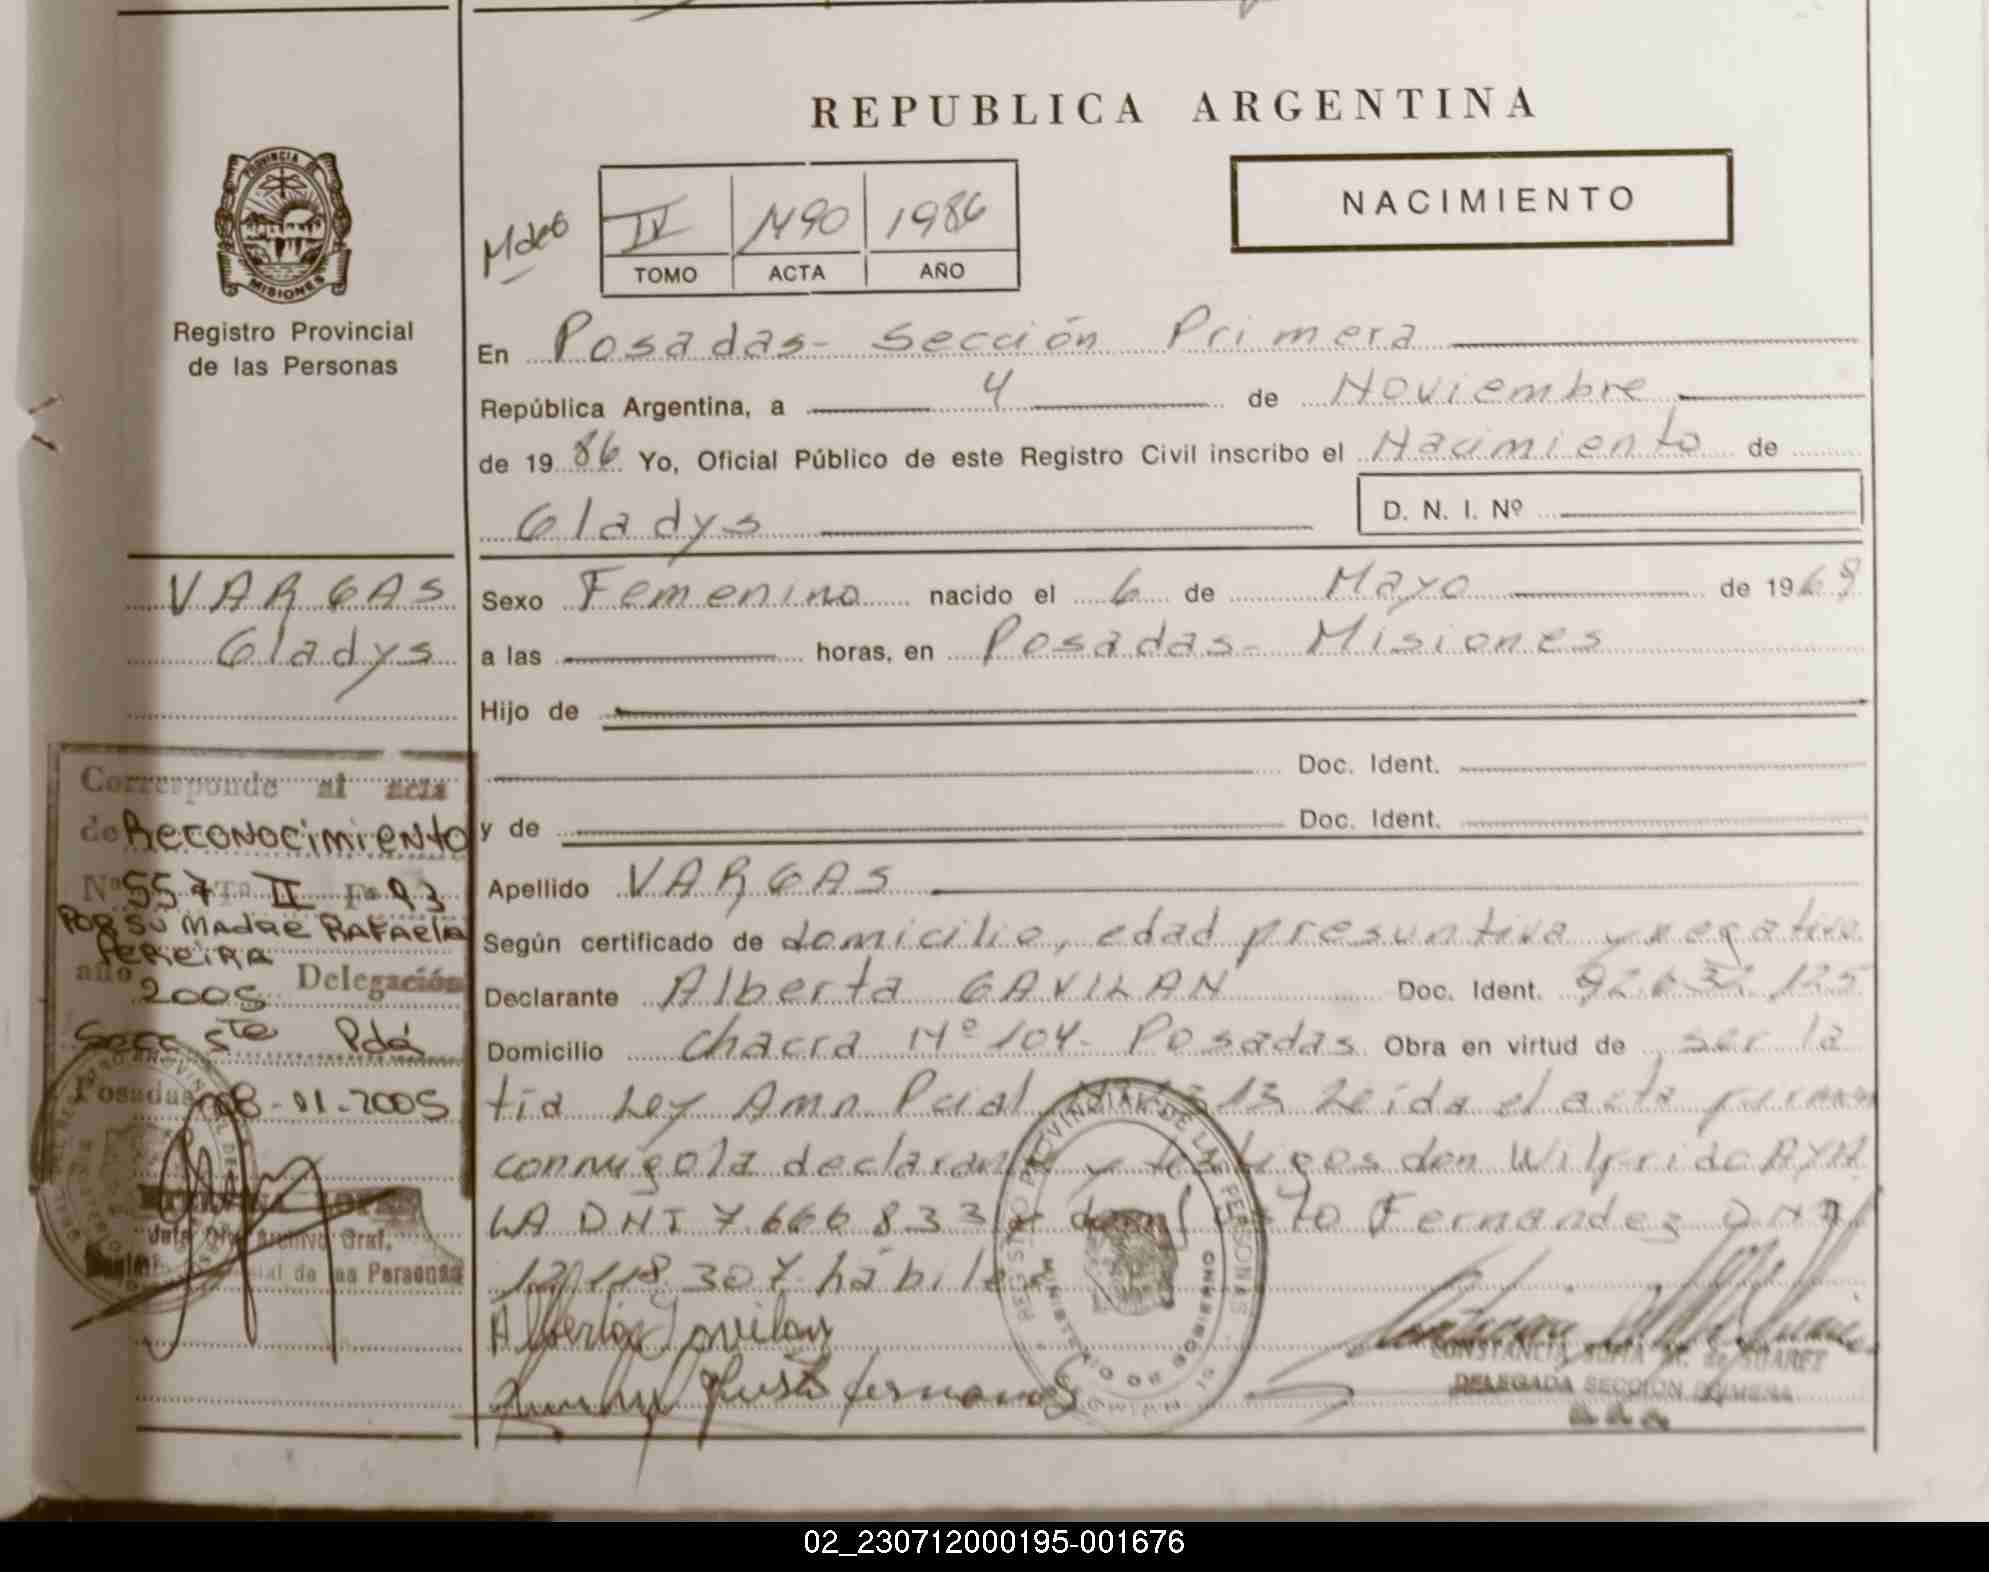 REPUBLICA ARGENTINA
PROVINCIA DE
MISIONES
Registro Provincial
de las Personas
IV 1490 1986
TOMO ACTA AÑO
NACIMIENTO
En Posadas- Sección Primera
República Argentina, a 4 de Noviembre
de 1986 Yo, Oficial Público de este Registro Civil inscribo el Nacimiento de
Gladys D. N. I. Nº
VARGAS
Gladys
Sexo Femenino nacido el 6 de Mayo de 1969
a las horas, en Posadas- Misiones
Hijo de
Doc. Ident.
y de Doc. Ident.
Apellido VARGAS
Según certificado de domicilio, edad presuntiva y negativa
Declarante Alberta GAVILAN Doc. Ident. 92.632.125
Domicilio chacra Nº 104- Posadas Obra en virtud de ser la
tía Ley Amn Pcial 13 Leída el acta firman
conmigo la declarante y testigos don Wilfrido AYA
LA DNI 7.666.833 y don Justo Fernandez DNI
12.118.307 hábiles
Alberta Gavilan
Justo Fernandez
CONSTANCIA SOFIA M. de SUAREZ
DELEGADA SECCION PRIMERA
REGISTRO PROVINCIAL DE LAS PERSONAS
MINISTERIO DE GOBIERNO
MISIONES
Corresponde al acta
de Reconocimiento
Nº 557 Tº II Fº 93
POR SU MADRE RAFAELA
PEREIRA
año 2005 Delegación
Secc 5te Pdá
Posadas 08-01-2005
Jefe Archivo Gral.
de las Personas
02_230712000195-001676